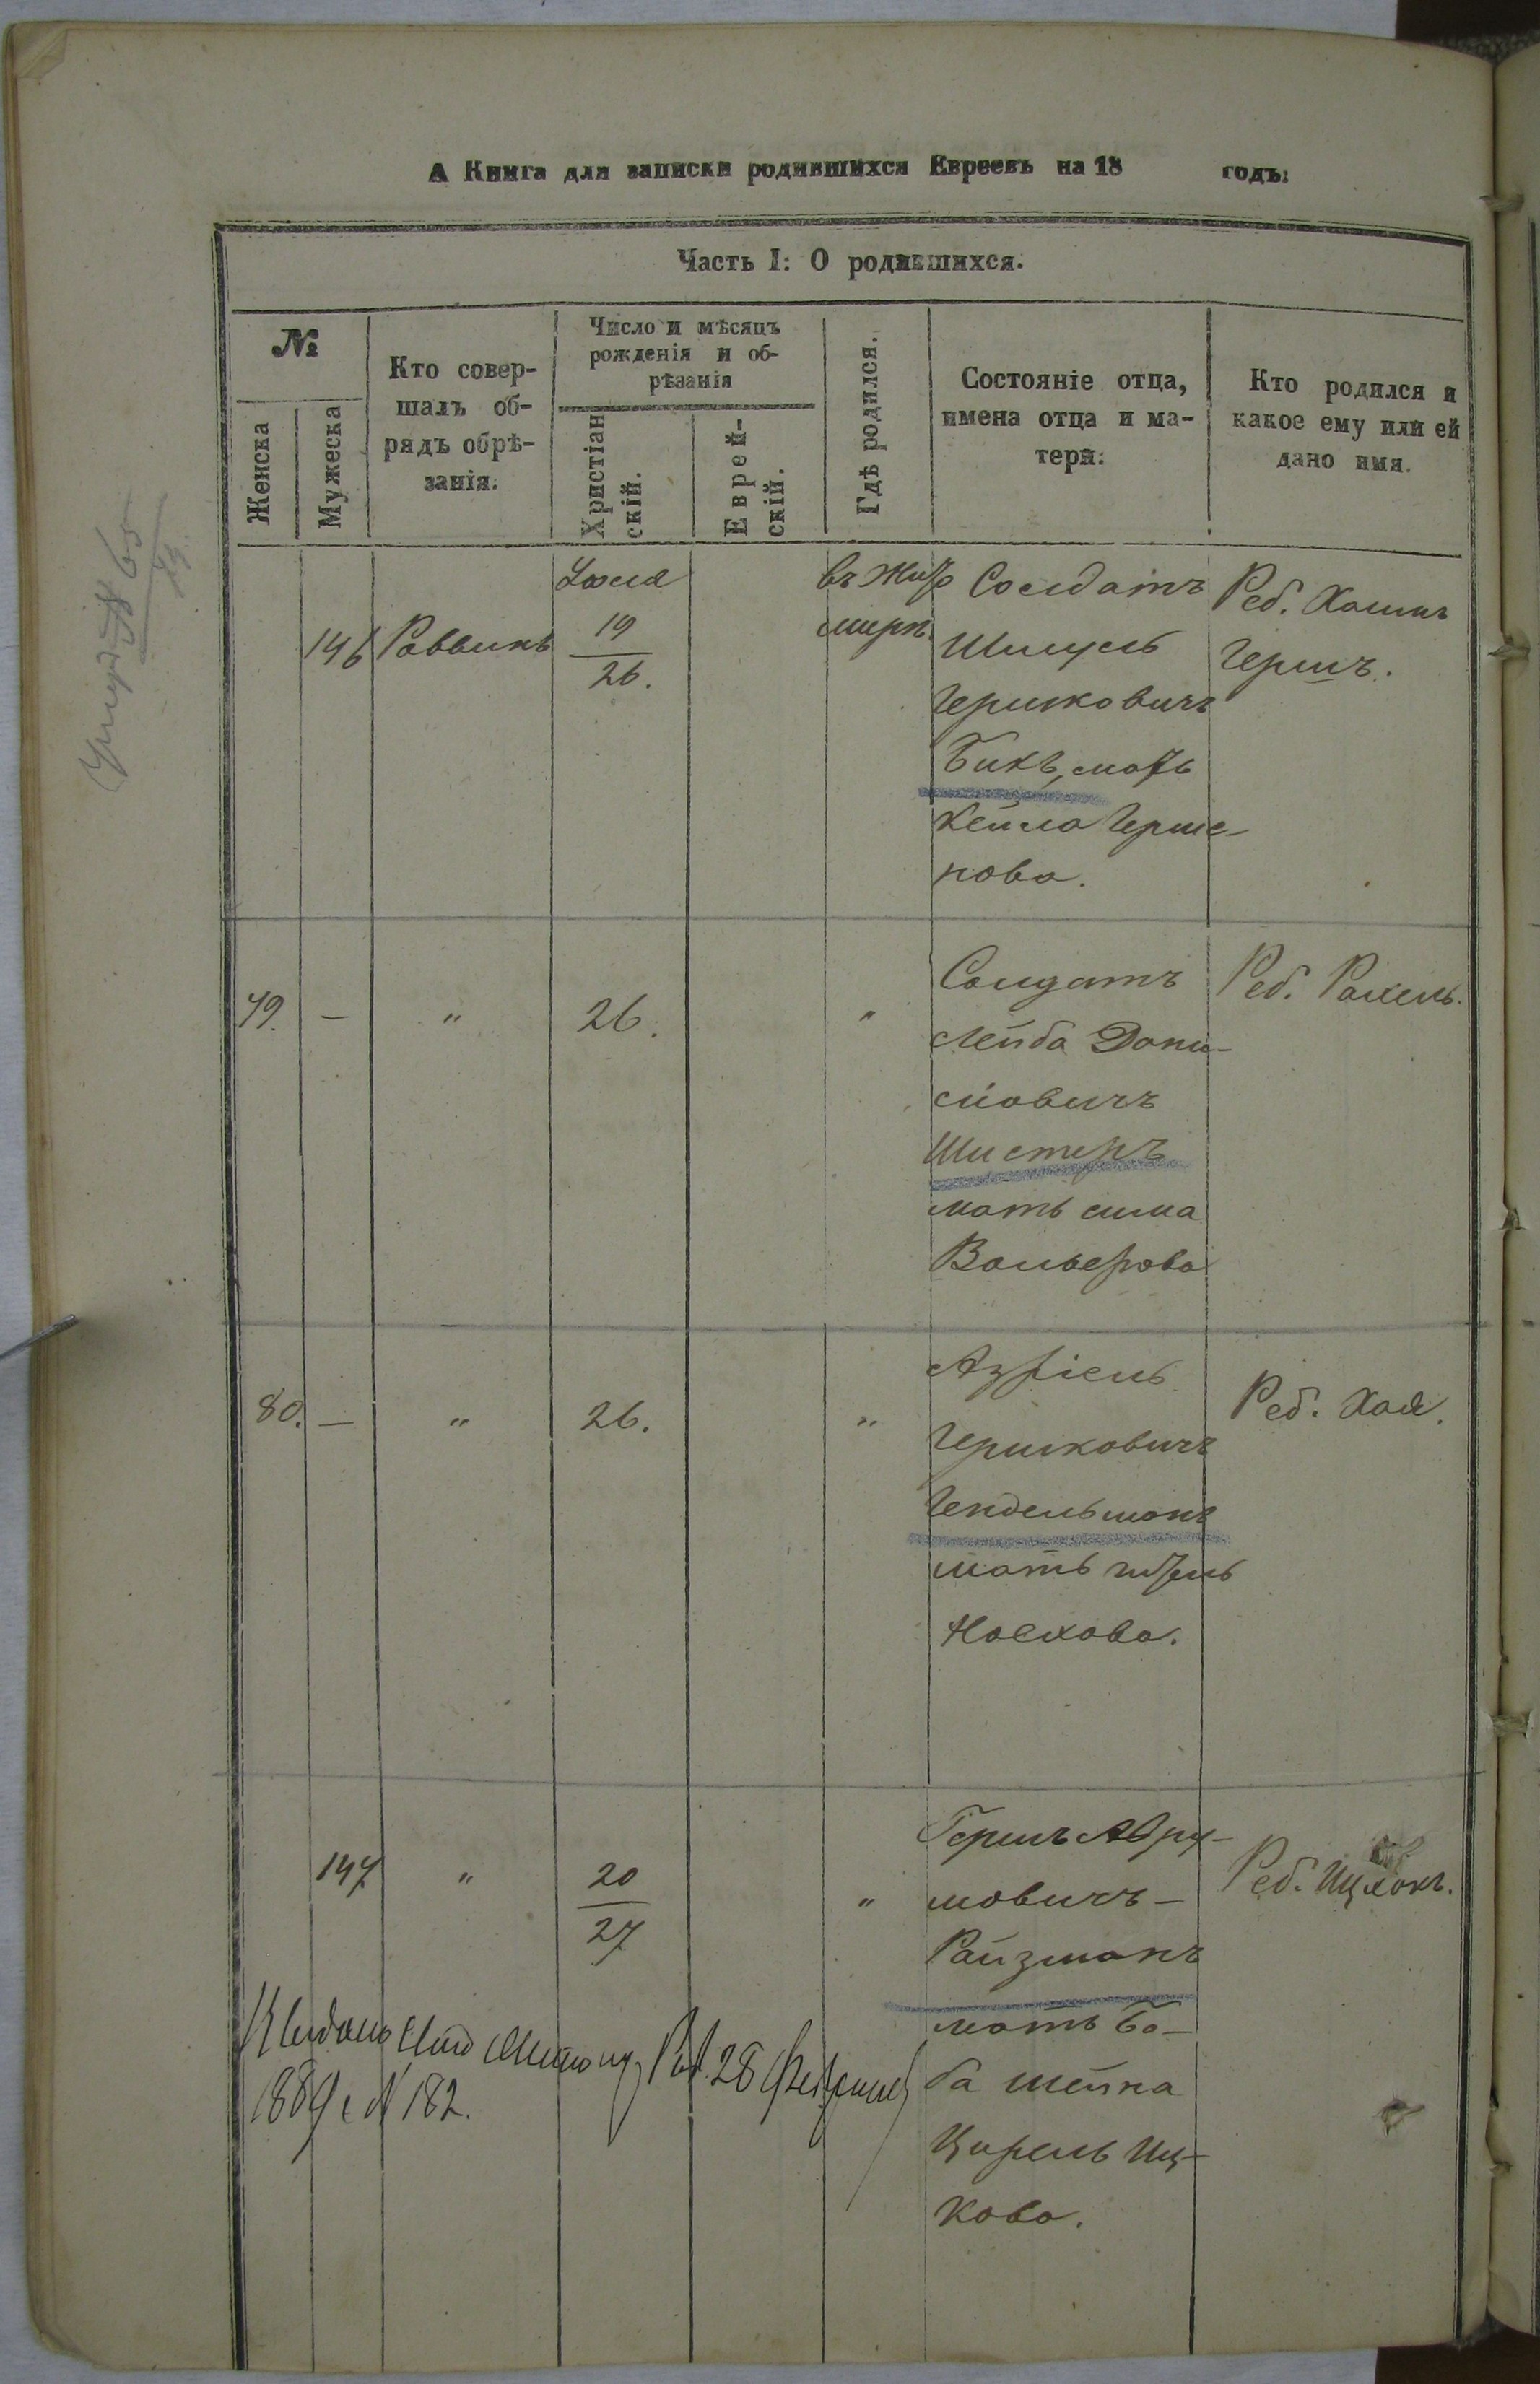 А Книга для записки родившихся Евреевъ на 18 годъ:
Часть I: О родившихся.
№
Женска
Мужеска
Кто совер-
шалъ об-
рядъ обрѣ-
занія.
Число и мѣсяцъ
рожденія и об-
рѣзанія
Христіан
скій.
Еврей-
скій.
Гдѣ родился.
Состояніе отца,
имена отца и ма-
тери:
Кто родился и
какое ему или ей
дано имя.
146
Раввинъ
Іюля
19
26.
въ Жито
мирѣ
Солдатъ
Шмуль
Гершковичъ
Бикъ, мать
Кейла Герше-
нова.
Реб. Хаимъ
Гершъ.
79.
—
"
26.
"
Солдатъ
Лейба Дани-
ловичъ
Шистеръ
мать Сима
Реб. Рахель.
80.
—
"
26.
"
Азріель
Гершковичъ
Гендельманъ
мать Гитель
Реб. Хая.
147
"
20
27
"
Гершъ Авру-
мовичъ —
Райзманъ
мать Ба-
ба Шейна
Цирель Иц-
кова.
Реб. Ицхокъ.
28 Февраля
1889 г № 182.
№ 65